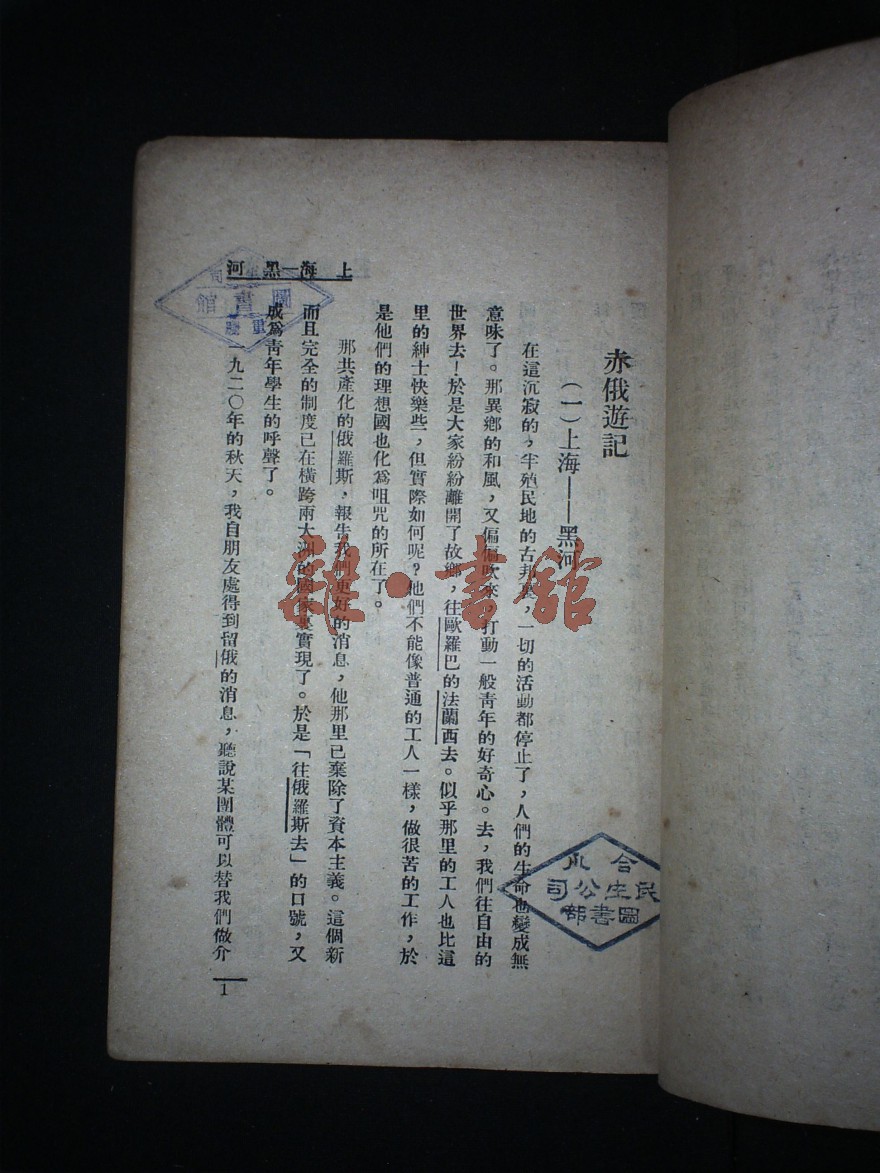 上海—黑河
赤俄遊記
（一）上海——黑河
在這沉寂的，半殖民地的古邦裏，一切的活動都停止了，人們的生命也變成無
意味了。那異鄉的和風，又偏偏吹來，打動一般靑年的好奇心。去，我們往自由的
世界去！於是大家紛紛離開了故鄉，往歐羅巴的法蘭西去。似乎那里的工人也比這
里的紳士快樂些，但實際如何呢？他們不能像普通的工人一樣，做很苦的工作，於
是他們的理想國也化爲咀咒的所在了。
那共產化的俄羅斯，報告我們更好的消息，他那里已棄除了資本主義。這個新
而且完全的制度已在橫跨兩大洲的國家裏實現了。於是「往俄羅斯去」的口號，又
成爲靑年學生的呼聲了。
一九二〇年的秋天，我自朋友處得到留俄的消息，聽說某團體可以替我們做介
1
合川
民生公司
圖書部
圖書館
雜·書館